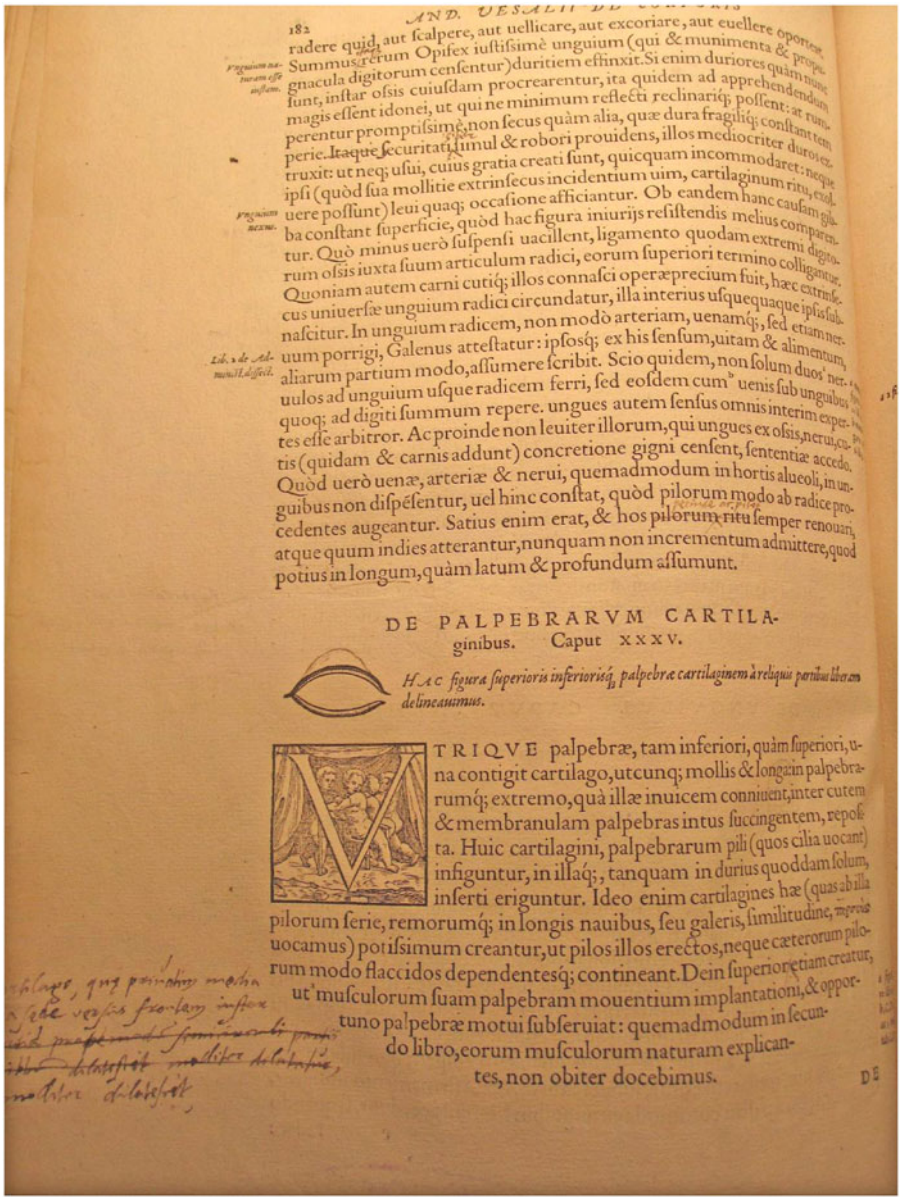 182
AND. VESALII DE CORPORIS
radere quid, aut scalpere, aut uellicare, aut excoriare, aut euellere oporteret.
Summus rerum Opifex iustissimè unguium (qui & munimenta & propu-
gnacula digitorum censentur) duritiem effinxit. Si enim duriores quàm nunc
sunt, instar ossis cuiusdam procrearentur, ita quidem ad apprehendendum
magis essent idonei, ut qui ne minimum reflecti reclinariq́; possent: at rum-
perentur promptissimè, non secus quàm alia, quæ dura fragiliq́; constant tem
perie. Itaque securitati simul & robori prouidens, illos mediocriter duros ex-
truxit: ut neq; usui, cuius gratia creati sunt, quicquam incommodaret: neque
ipsi (quòd sua mollitie extrinsecus incidentium uim, cartilaginum ritu, exol-
uere possunt) leui quaq; occasione afficiantur. Ob eandem hanc causam gib-
ba constant superficie, quòd hac figura iniurijs resistendis melius comparen-
tur. Quò minus uerò suspensi uacillent, ligamento quodam extremi digito-
rum ossis iuxta suum articulum radici, eorum superiori termino colligantur.
Quoniam autem carni cutiq́; illos connasci operæprecium fuit, hæc extrinse-
cus uniuersæ unguium radici circundatur, illa interius usquequaque ipsis sub-
nascitur. In unguium radicem, non modò arteriam, uenamq́;, sed etiam ner-
uum porrigi, Galenus attestatur: ipsosq́; ex his sensum, uitam & alimentum,
aliarum partium modo, assumere scribit. Scio quidem, non solum duos ner-
uulos ad unguium usque radicem ferri, sed eosdem cum uenis sub unguibus
quoq; ad digiti summum repere. ungues autem sensus omnis interim exper-
tes esse arbitror. Ac proinde non leuiter illorum, qui ungues ex ossis, nerui, cu-
tis (quidam & carnis addunt) concretione gigni censent, sententiæ accedo.
Quòd uerò uenæ, arteriæ & nerui, quemadmodum in hortis alueoli, in un-
guibus non dispẽsentur, uel hinc constat, quòd pilorum modo ab radice pro-
cedentes augeantur. Satius enim erat, & hos pilorum ritu semper renouari,
atque quum indies atterantur, nunquam non incrementum admittere, quod
potius in longum, quàm latum & profundum assumunt.
Vnguium na-
turam esse
iustam.
Vnguium
nexus.
Lib. 2 de Ad-
minist. dissect.
DE PALPEBRARVM CARTILA-
ginibus. Caput XXXV.
HAC figura superioris inferiorisq́; palpebræ cartilaginem à reliquis partibus liberam
delineauimus.
VTRIQVE palpebræ, tam inferiori, quàm superiori, u-
na contigit cartilago, utcunq; mollis & longa: in palpebra-
rumq́; extremo, quà illæ inuicem conniuent, inter cutem
& membranulam palpebras intus succingentem, reposi-
ta. Huic cartilagini, palpebrarum pili (quos cilia uocant)
infiguntur, in illaq́;, tanquam in durius quoddam solum,
inserti eriguntur. Ideo enim cartilagines hæ (quas ab illa
pilorum serie, remorumq́; in longis nauibus, seu galeris, similitudine,
uocamus) potissimum creantur, ut pilos illos erectos, neque cæterorum pilo-
rum modo flaccidos dependentesq́; contineant. Dein superior etiam creatur,
ut musculorum suam palpebram mouentium implantationi, & oppor-
tuno palpebræ motui subseruiat: quemadmodum in secun-
do libro, eorum musculorum naturam explican-
tes, non obiter docebimus.
DE
quę media
versus frontem
dilatesrit molliter dilatatur,
molliter dilatesrit,